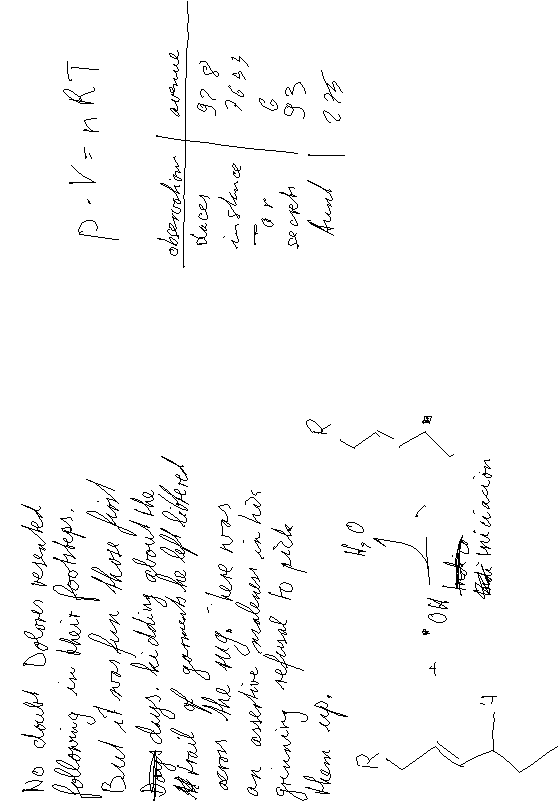 No doubt Dolores resented
following in their footsteps.
But it was fun those first
days. kidding about the
trail of garments he left littered
across the rug. There was
an assertive maleness in his
grinning refusal to pick
them up.
P · V = n R T
observation avenue
Daces 978
instance 7633
or 6
secrets 93
Aunt 275
R
H
+
• OH
H₂O
initiation
R